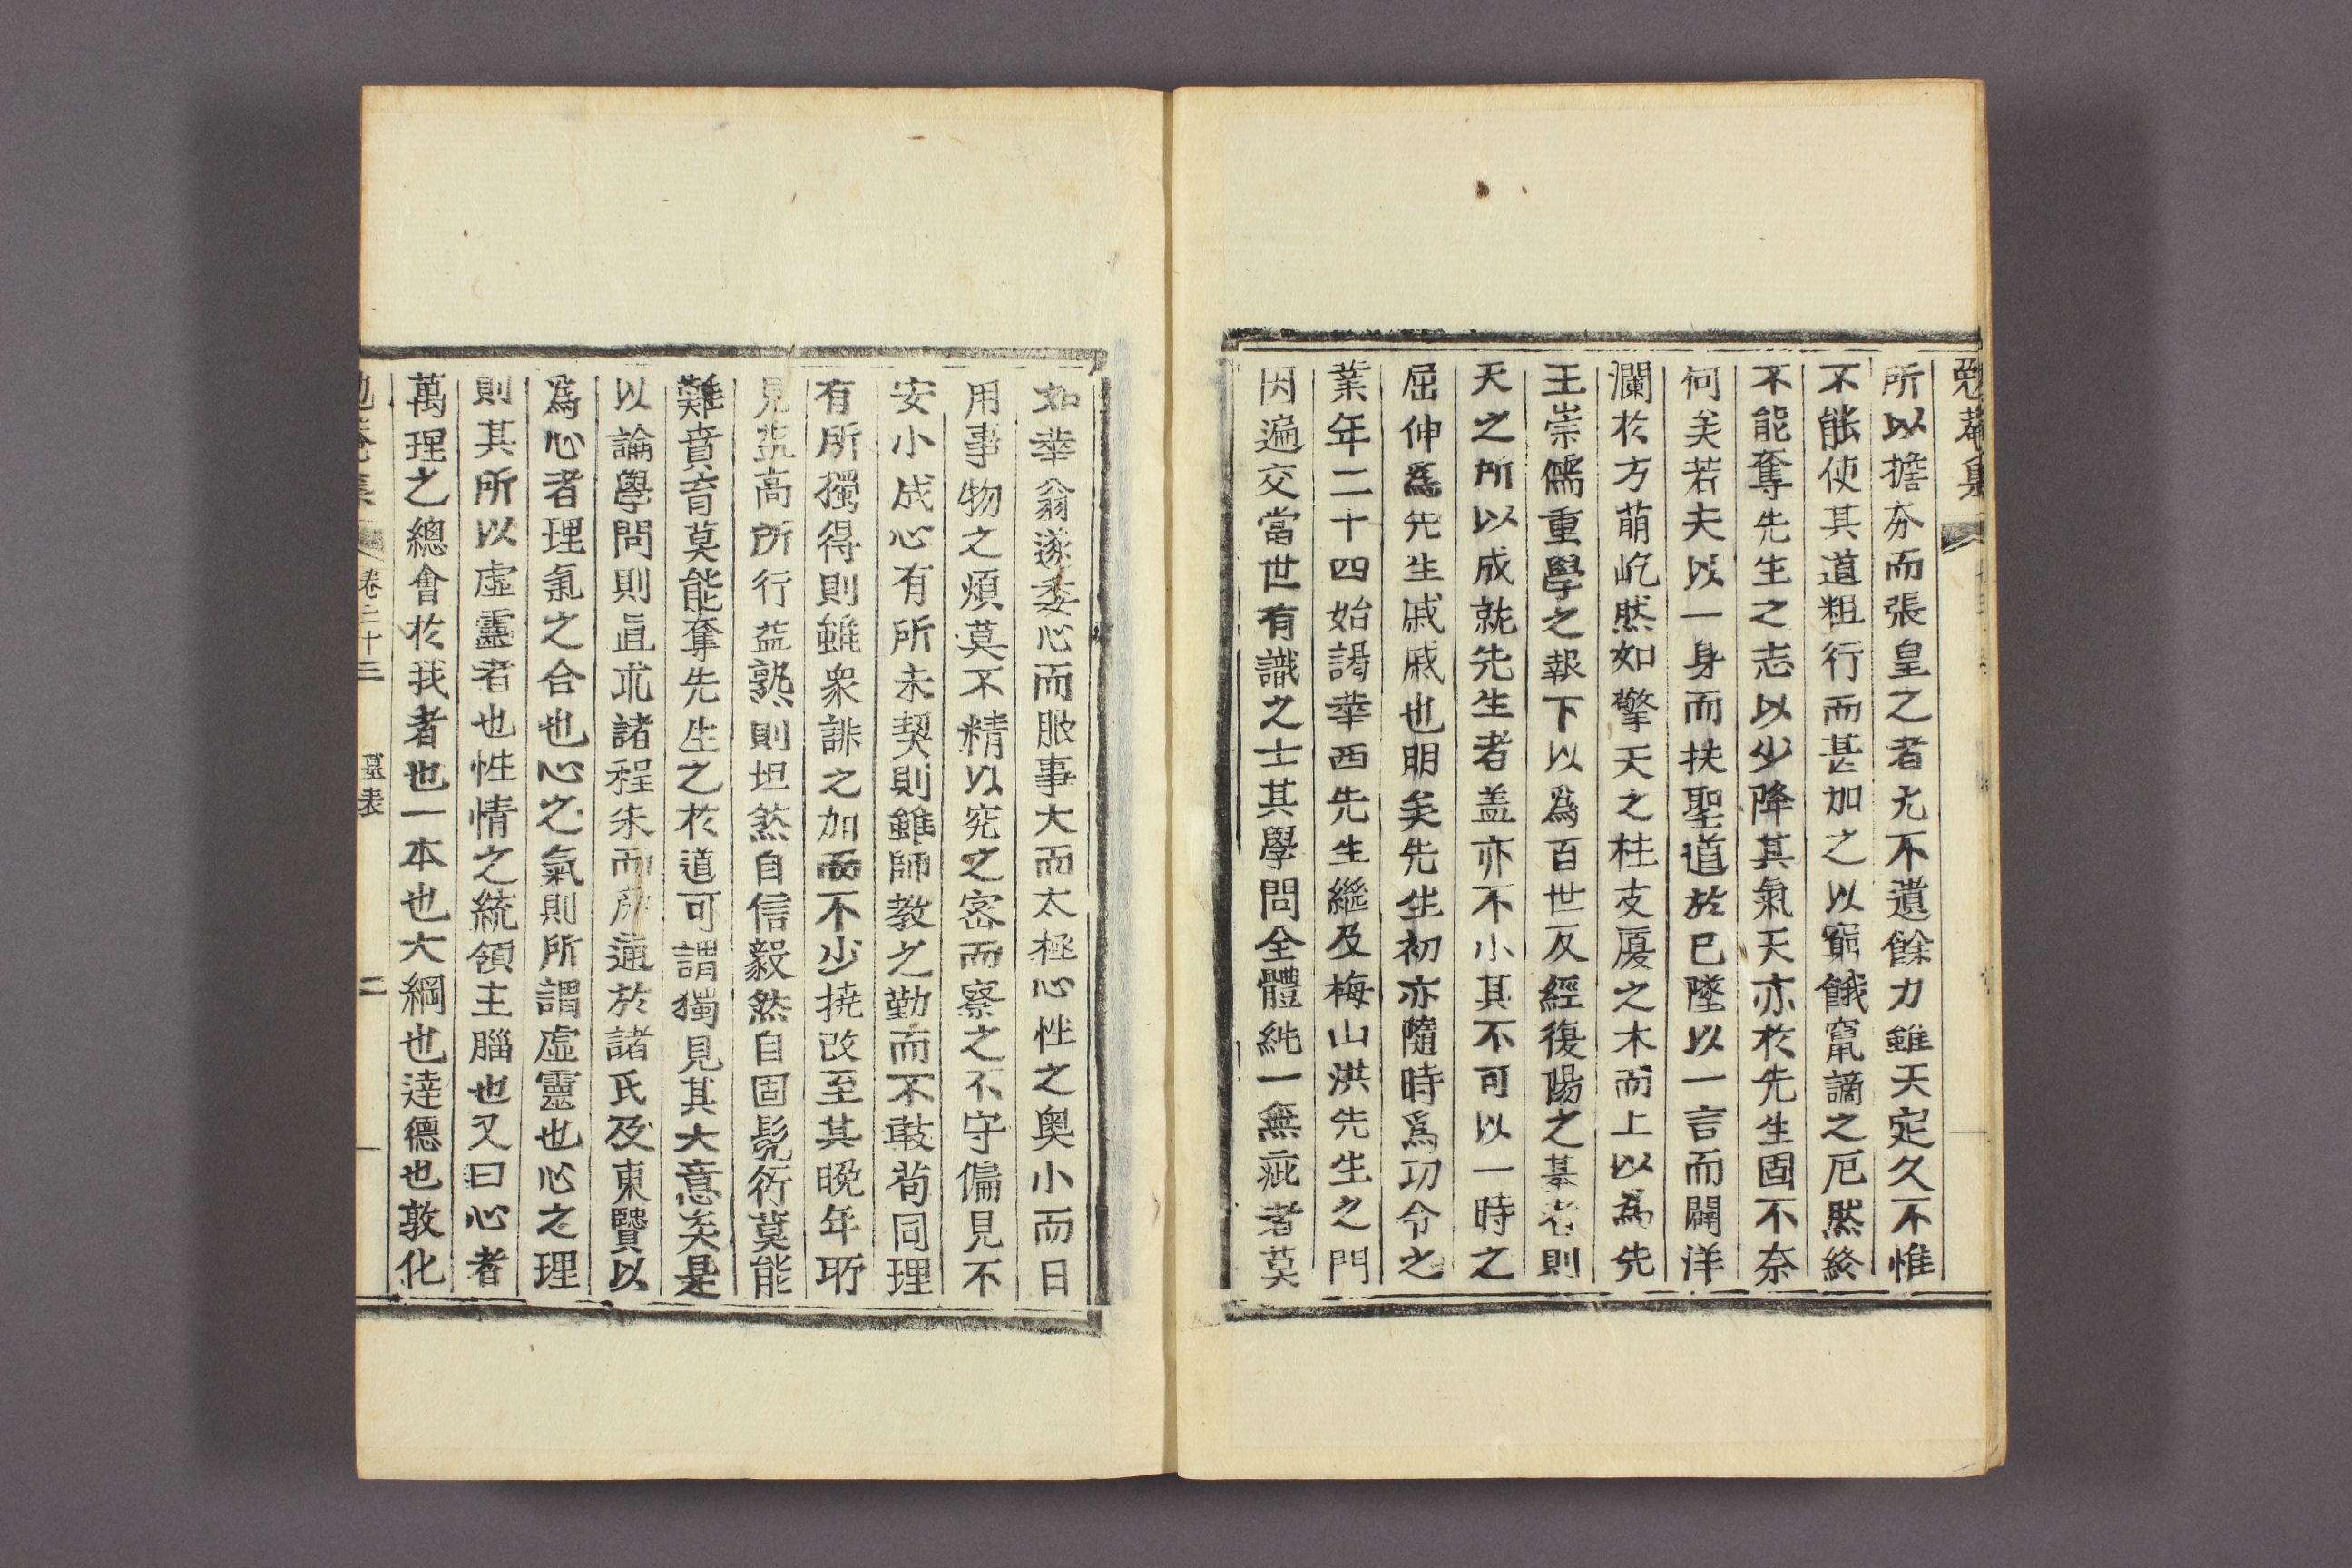 勉菴集
所以擔夯而張皇之者尤不遺餘力雖天定久不惟
不能使其道粗行而甚加之以窮餓竄謫之厄然終
不能奪先生之志以少降其氣天亦於先生固不奈
何矣若夫以一身而扶聖道於已墜以一言而闢洋
瀾於方萌屹然如擎天之柱支廈之木而上以爲先
王崇儒重學之報下以爲百世反經復陽之基者則
天之所以成就先生者盖亦不小其不可以一時之
屈伸爲先生戚戚也明矣先生初亦隨時爲功令之
業年二十四始謁華西先生繼及梅山洪先生之門
因遍交當世有識之士其學問全體純一無疵者莫
如華翁遂委心而服事大而太極心性之奧小而日
用事物之煩莫不精以究之密而察之不守偏見不
安小成心有所未契則雖師教之勤而不敢苟同理
有所獨得則雖衆誹之加而不少撓改至其晩年所
見益高所行益熟則坦然自信毅然自固髡衍莫能
難賁育莫能奪先生之於道可謂獨見其大意矣是
以論學問則直求諸程朱而旁通於諸氏及東賢以
爲心者理氣之合也心之氣則所謂虛靈也心之理
則其所以虛靈者也性情之統領主腦也又曰心者
萬理之總會於我者也一本也大綱也達德也敦化
勉菴集 卷二十三 墓表 二